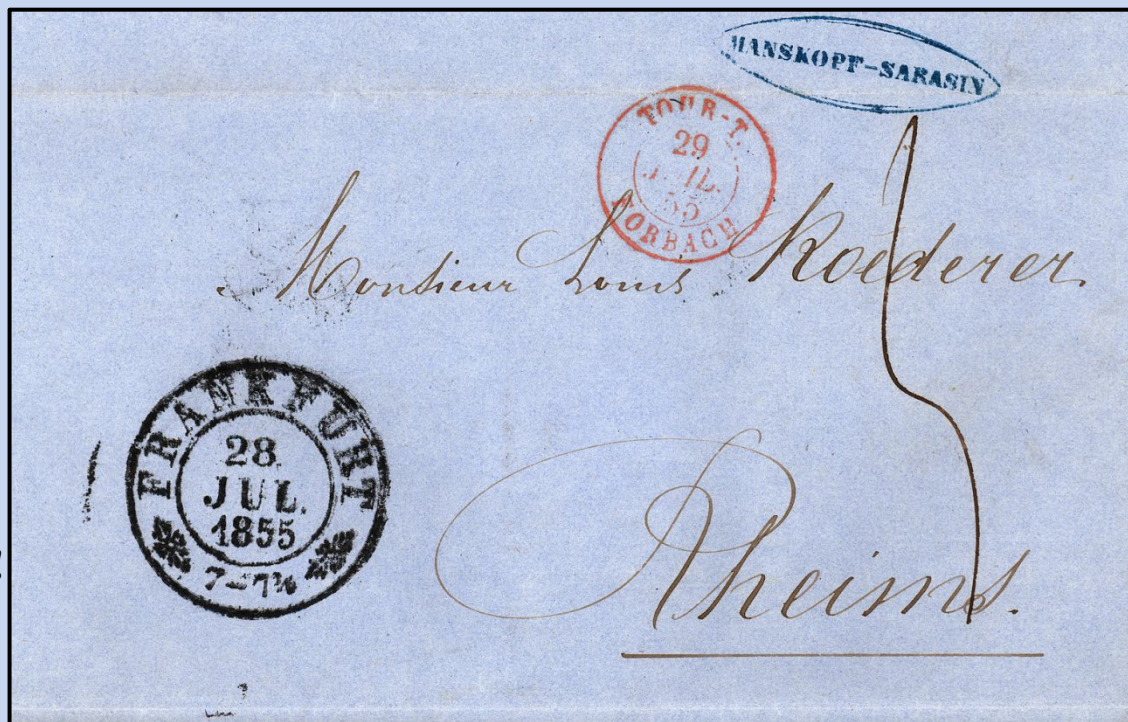 MANSKOPF-SARASIN
TOUR-T.
29
JUIL.
55
FORBACH
Monsieur Louis Roederer
FRANKFURT
28.
JUL.
1855
7-7½
Rheims.